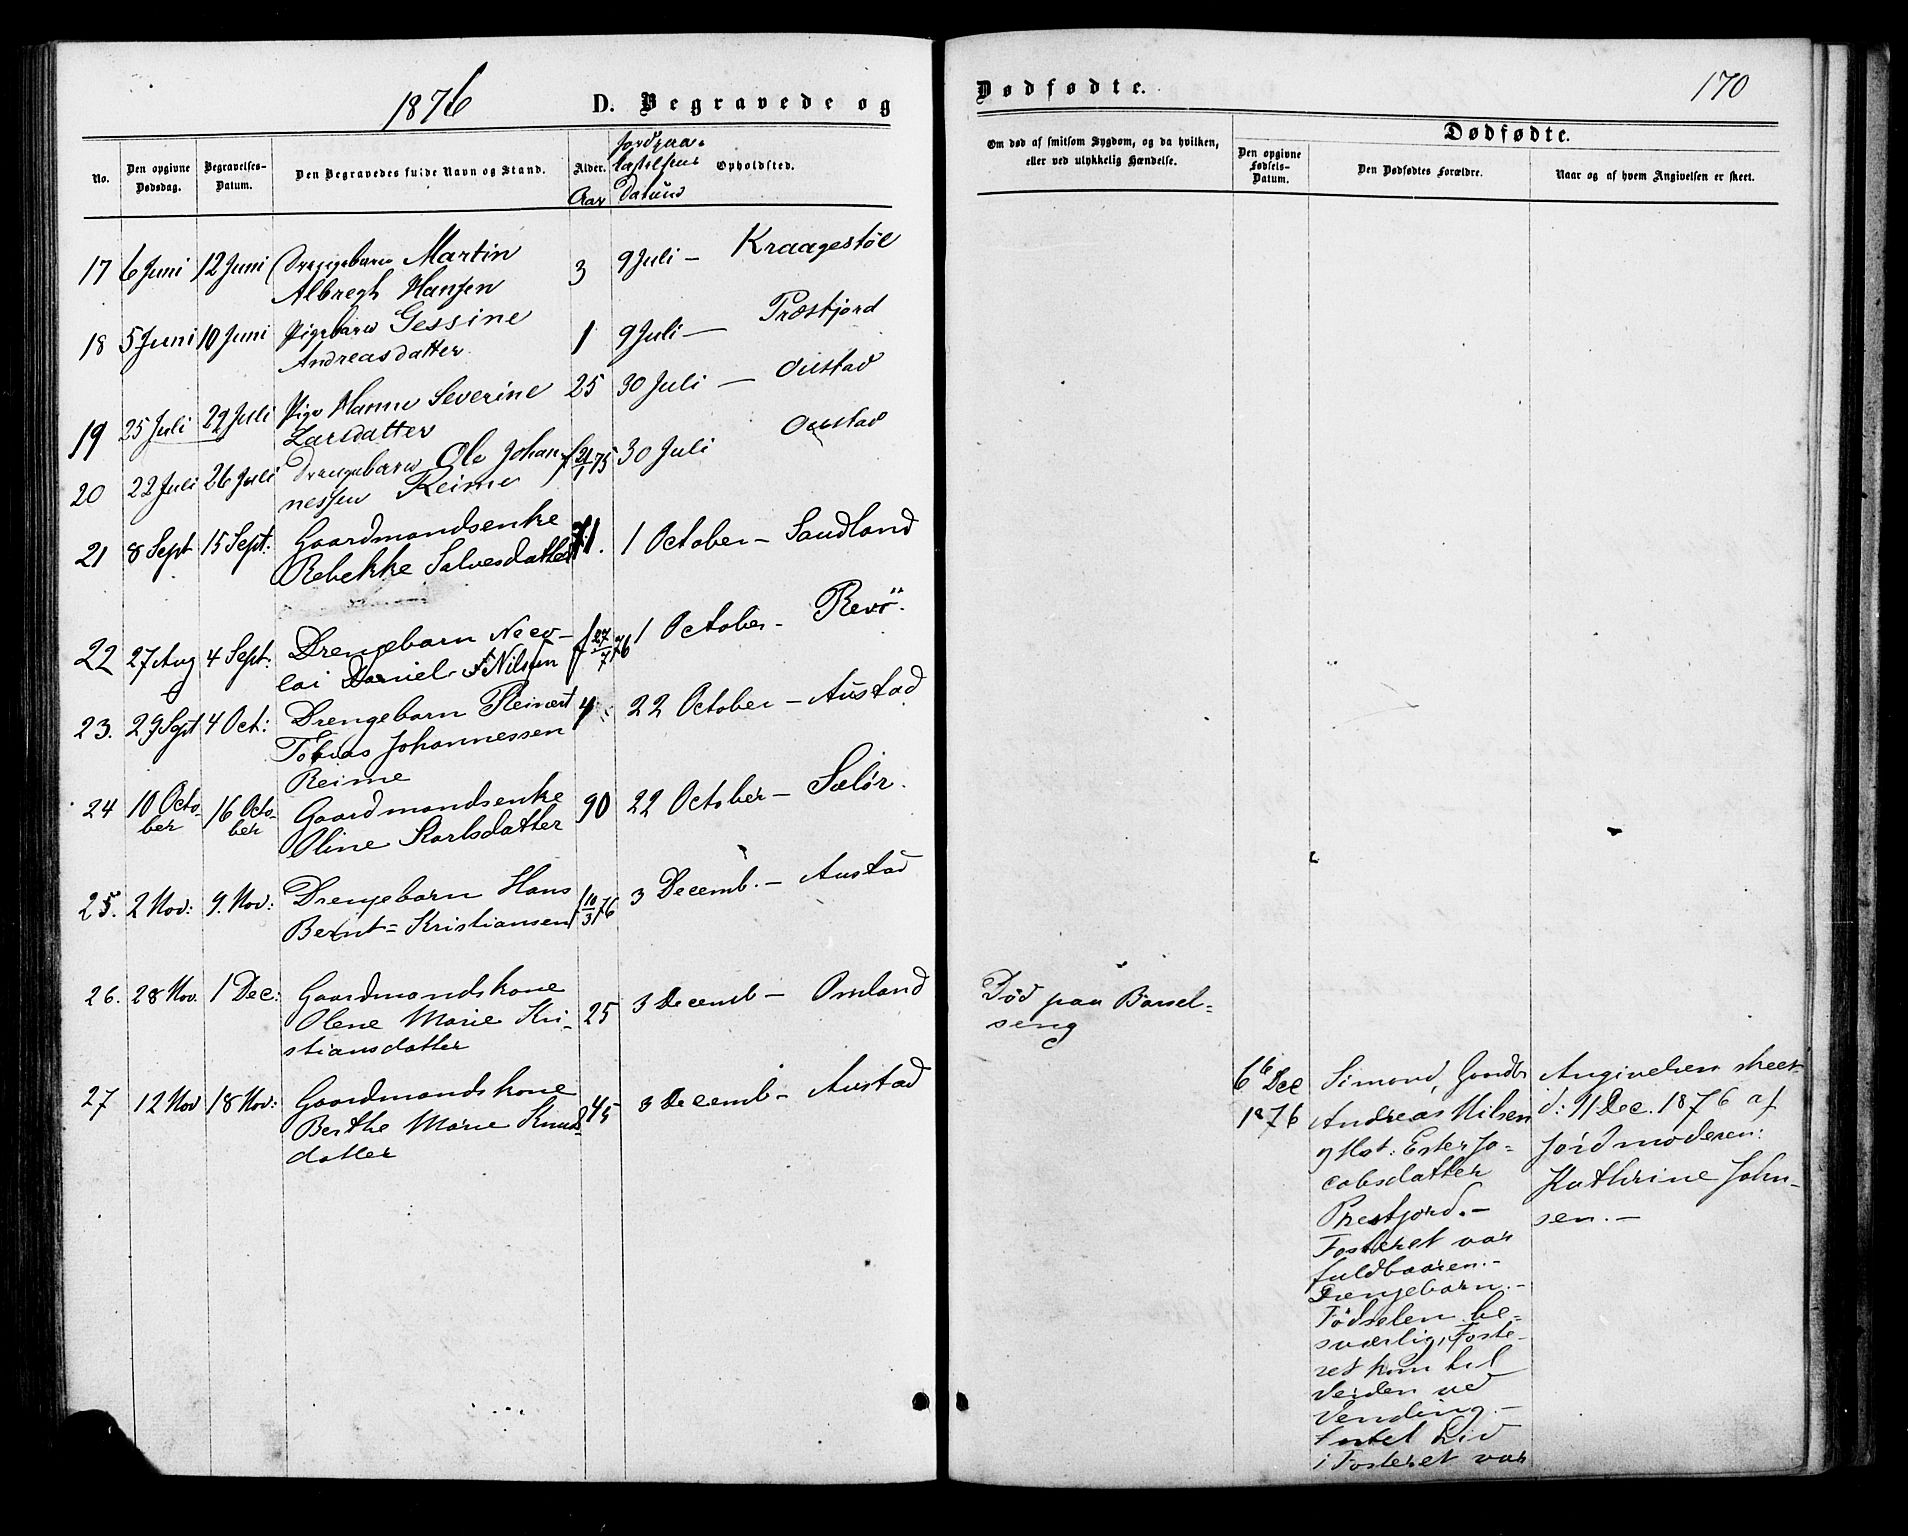 1876 D. Begravede og
No.
Den opgivne Dødsdag.
Begravelses-Datum.
Den Begravedes fulde Navn og Stand.
Alder.
Aar
Jordpaa-
Datum
Opholdsted.
17 6 Juni 12 Juni Drengebarn Martin 3 9 Juli – Kraagestøl
Albregh Hansen
18 5 Juni 10 Juni Pigebarn Gessine 1 9 Juli — Præstfjord
Andreasdatter
19 25 Juli 29 Juli Pige Hanne Severine 25 30 Juli — Oustad
Larsdatter
20 22 Juli 26 Juli Drengebarn Ole Johan- f 21/1 75 30 Juli Oustad
nessen Reime
21 8 Sept 15 Sept: Gaardmandsenke 71. 1 October – Sandland
Rebekke Salvesdatter
22 27 Aug 4 Sept: Drengebarn f 27/7 76 1 October – Revö.
lai Daniel Nilsen
23. 29 Sept 4 Oct: Drengebarn Reinert 4 22 October – Austad
Tobias Johannessen
Reime
24 10 Octo- 16 Octo- Gaardmandsenke 90 22 October – Selör.
ber ber Oline Karlsdatter
25. 2 Nov: 9. Nov: Drengebarn Hans f 10/3 76 3 Decemb. – Austad
Bernt= Kristiansen
26. 28 Nov. 1 Dec: Gaardmandskone 25 3 Decemb – Omland
Olene Marie Kri-
stiansdatter
27 12 Nov 18 Nov: Gaardmandskone 45 3 Decemb – Austad
Berthe Marie Knuds
datter
Dødfødte.
170
Om død af smitsom Sygdom, og da hvilken,
eller ved ulykkelig Hændelse.
Dødfødte.
Den opgivne
Fødsels-
Datum.
Den Dødfødtes Forældre.
Naar og af hvem Angivelsen er skeet.
Død paa Barsel=
seng
6te Dec
1876
Simond, Gmdbr
Andreas Nilsen
Hst: Ester Ja=
cobsdatter
Prestfjord. –
Fosteret var
fuldbaaren. –
Drengebarn. –
Fødselen be-
sværlig, Foste-
ret kom til
Verden ved
Vending. –
Liv
i Fosteret var
Angivelsen skeet
d: 11 Dec. 1876 af
Jordmoderen:
Kathrine John-
sen. –